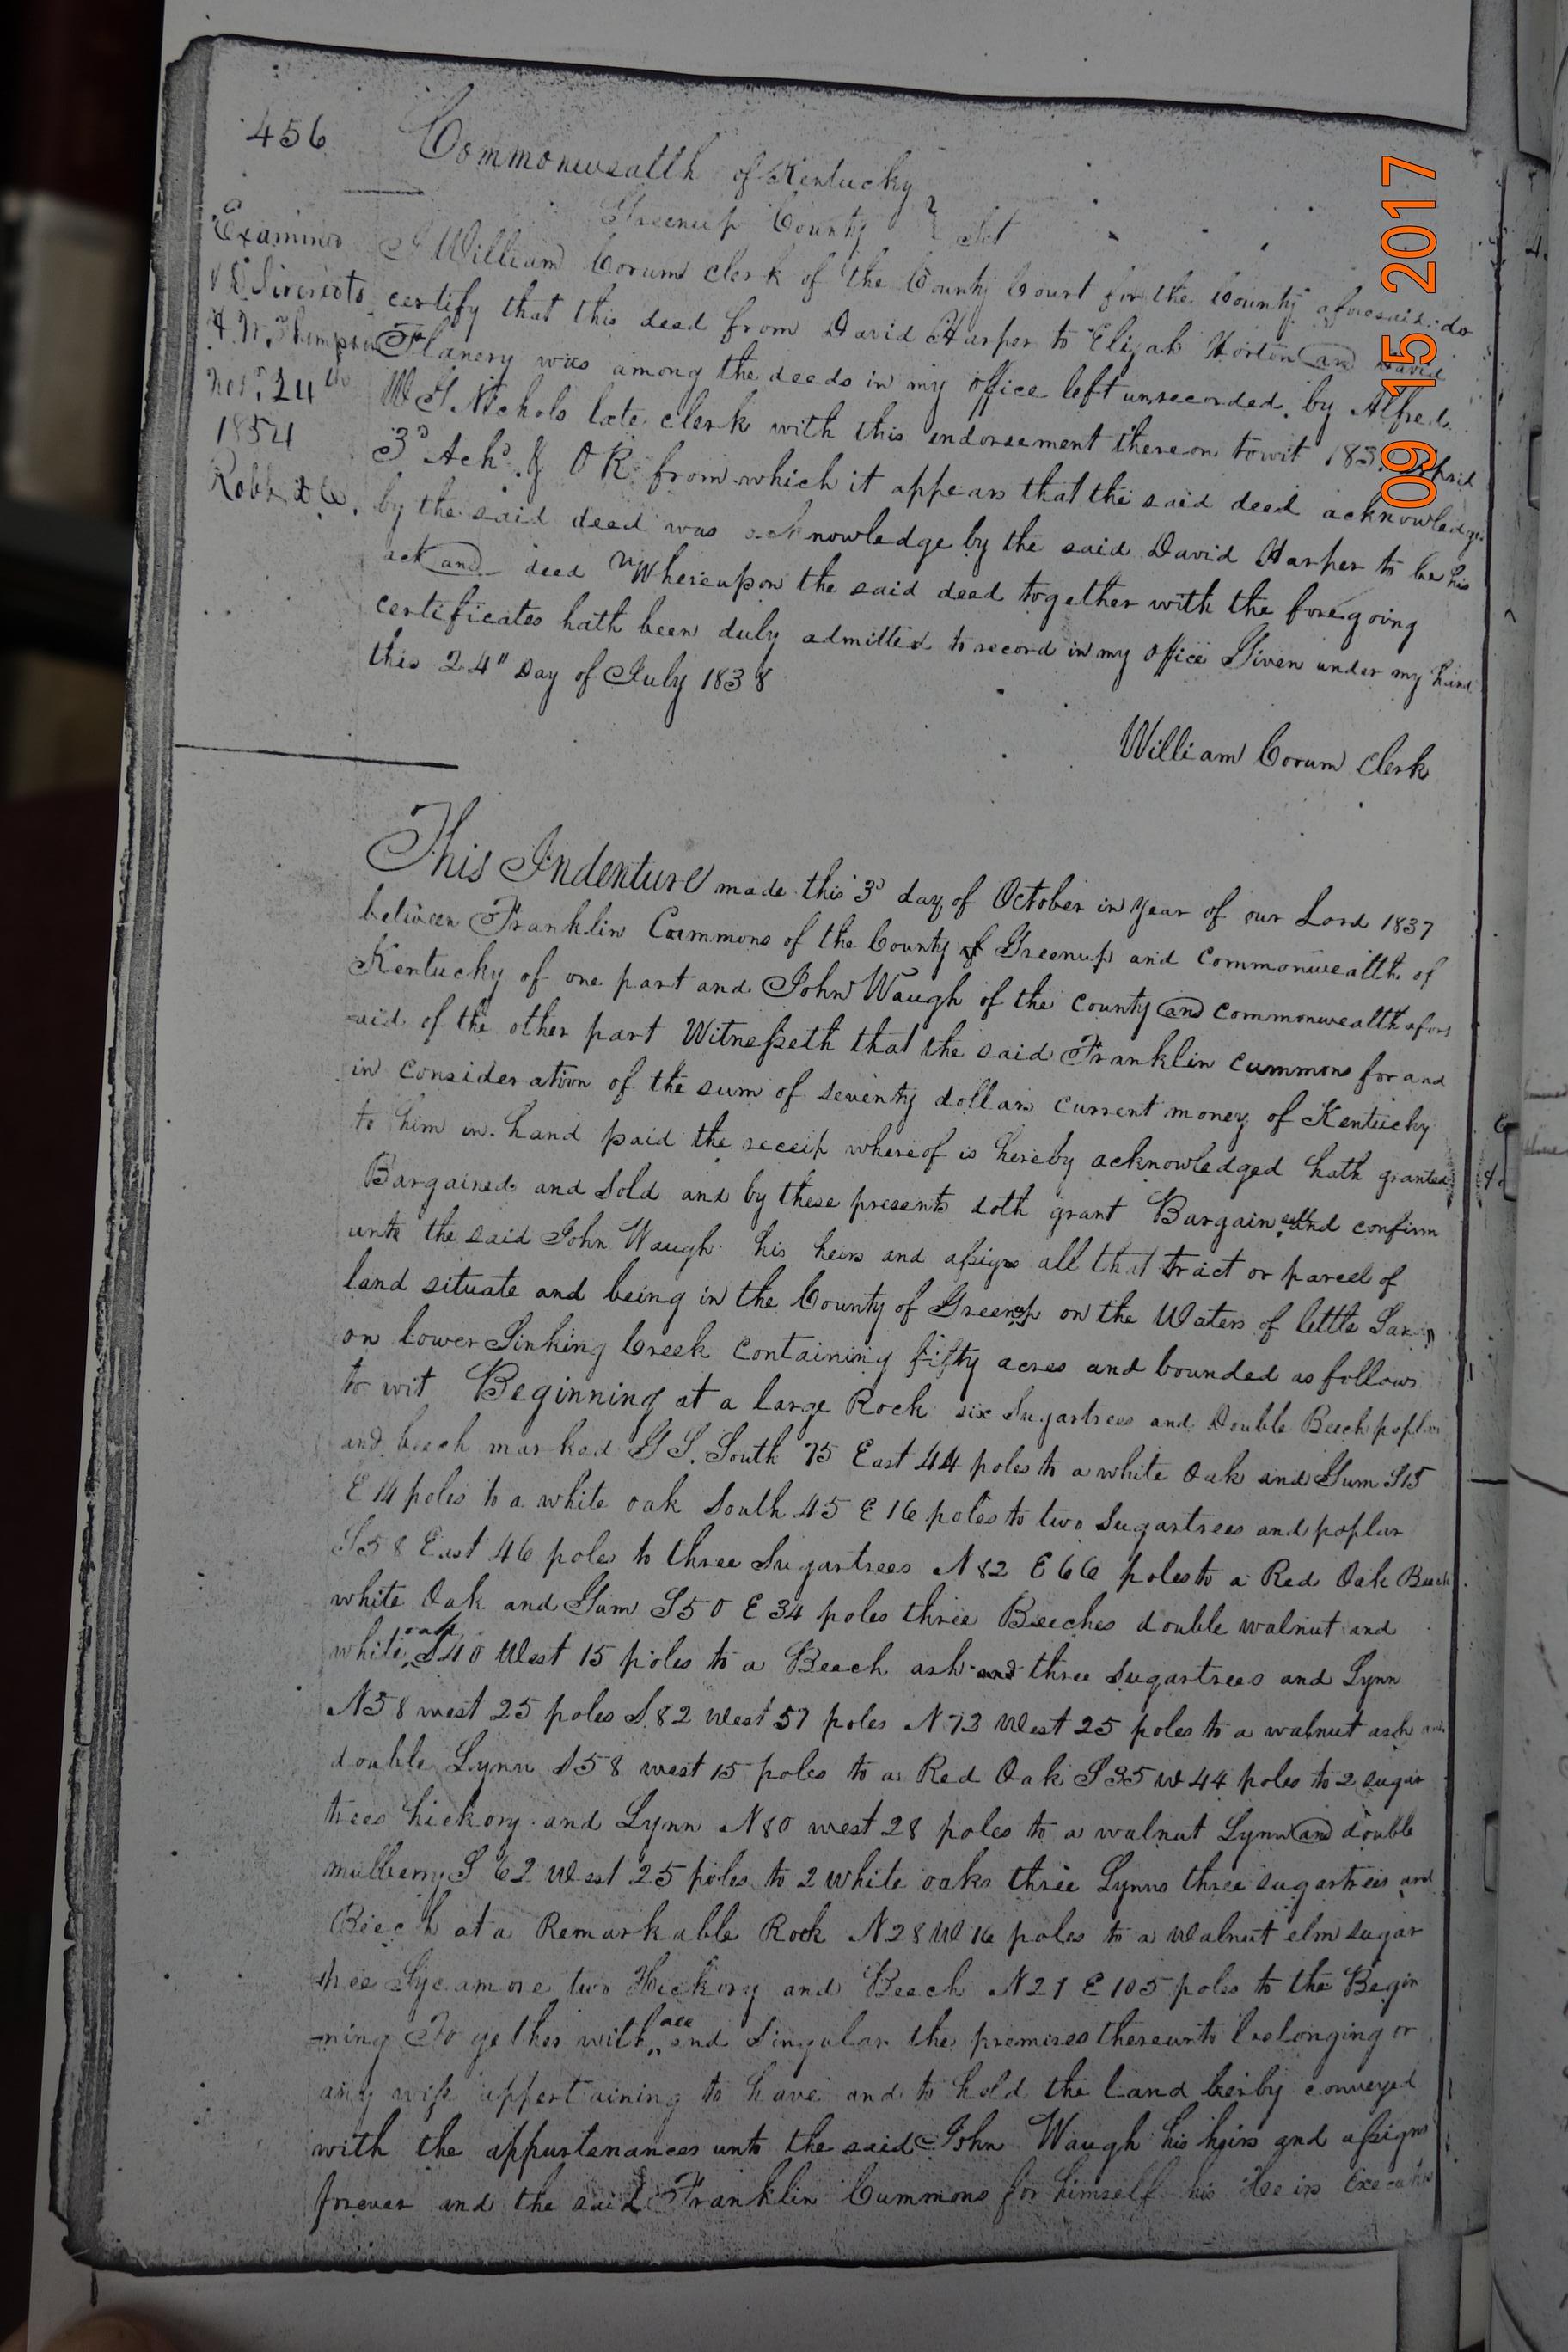 456
Commonwealth of Kentucky
Greenup County } Sct
I William Corum clerk of the County Court for the County aforesaid do
certify that this deed from David Harper to Elijah Horton and David
Flanery was among the deeds in my office left unrecorded by Alfred
W G Nichols late clerk with this endorsement thereon towit 183 April
3d Ackd & O R from which it appears that the said deed acknowledge
by the said deed was acknowledge by the said David Harper to be his
act and deed Whereupon the said deed together with the foregoing
certificates hath been duly admitted to record in my office Given under my hand
this 24" Day of July 1838
William Corum Clerk
Examined
Novr. 24th
1854
This Indenture made this 3d day of October in Year of our Lord 1837
between Franklin Cummons of the County of Greenup and Commonwealth of
Kentucky of one part and John Waugh of the county and commonwealth afore
said of the other part Witnesseth that the said Franklin cummons for and
in consideration of the sum of seventy dollars current money of Kentucky
to him in hand paid the receip whereof is hereby acknowledged hath granted
Bargained and Sold and by these presents doth grant Bargain sell and confirm
unto the said John Waugh his heirs and assigns all that tract or parcel of
land situate and being in the County of Greenup on the Waters of little San"
on lower Sinking Creek containing fifty acres and bounded as follows
to wit Beginning at a large Rock six Sugartrees and Double Beech poplar
and beech marked G S. South 75 East 44 poles to a white Oak and Gum S15
E 14 poles to a white oak South 45 E 16 poles to two Sugartrees and poplar
S58 East 46 poles to three Sugartrees N 82 E 66 poles to a Red Oak Beech
white Oak and Gum S50 E 34 poles three Beeches double walnut and
white oak S40 West 15 poles to a Beech ash and three Sugartrees and Lynn
N58 west 25 poles S.82 West 57 poles N73 West 25 poles to a walnut ash and
double Lynn S58 west 15 poles to a Red Oak S35 W 44 poles to 2 sugar
trees hickory and Lynn N80 west 28 poles to a walnut Lynn and double
mulberry S 62 West 25 poles to 2 white oaks three Lynns three sugartrees and
Beech at a Remarkable Rock N28 W 16 poles to a Walnut elm sugar
tree Sycamore two Hickory and Beech N21 E 105 poles to the Begin
ning To gether with all and Singular the premises thereunto belonging or
any wise appertaining to have and to hold the land herby conveyed
with the appurtenances unto the said John Waugh his heirs and assigns
forever and the said Franklin Cummons for himself his Heirs Executors
09 15 2017